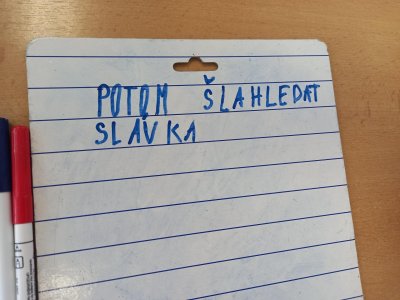 POTOM ŠLAHLEDAT
SLÁVKA